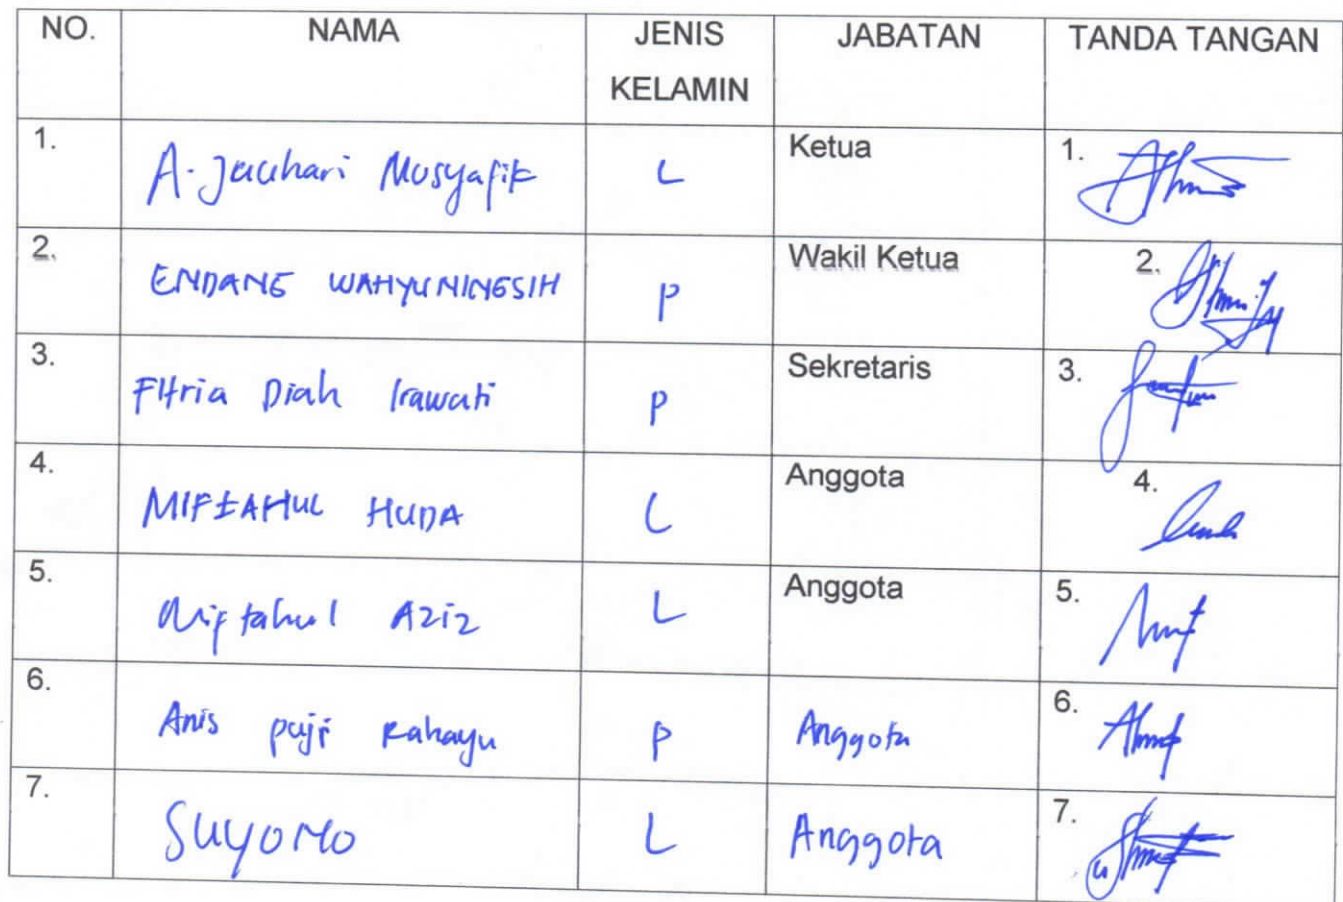 NO. NAMA JENIS KELAMIN JABATAN TANDA TANGAN
1. A. Jauhari Musyafik L Ketua 1.
2. ENDANG WAHYUNINGSIH P Wakil Ketua 2.
3. Fitria Diah Irawati P Sekretaris 3.
4. MIFTAHUL HUDA L Anggota 4.
5. Miftahul Aziz L Anggota 5.
6. Anis puji Rahayu P Anggota 6.
7. SUYONO L Anggota 7.